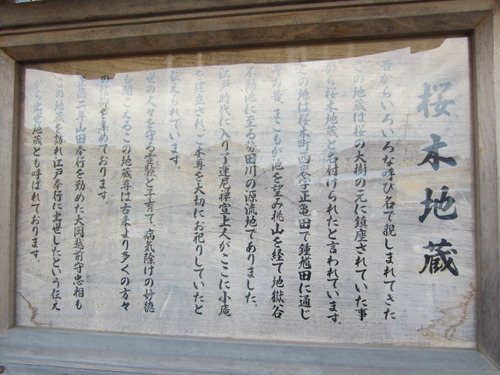 桜木地蔵
昔からいろいろな呼び名で親しまれてきた
この地蔵は桜の大樹の元に鎮座されていた事
から桜木地蔵と名付けられたと言われています。
この地は桜木町西八字正亀田で鍾馗田に通じ
その昔、まこもが池を望み桃山を経て地獄谷
不動池に至る勢田川の源流地でありました。
江戸時代に入り了蓮尼禅宣上人がここに小庵
を建立され、ご本尊を大切にお祀りしていたと
伝えられています。
世の人々を守る霊験と子育て、病気除けの妙徳
も聞こえるこの地蔵尊は古来より多くの方々
を集めております
二年山田奉行を勤めた大岡越前守忠相も
この地蔵を訪れ江戸奉行に出世したという伝え
から出世地蔵とも呼ばれております。